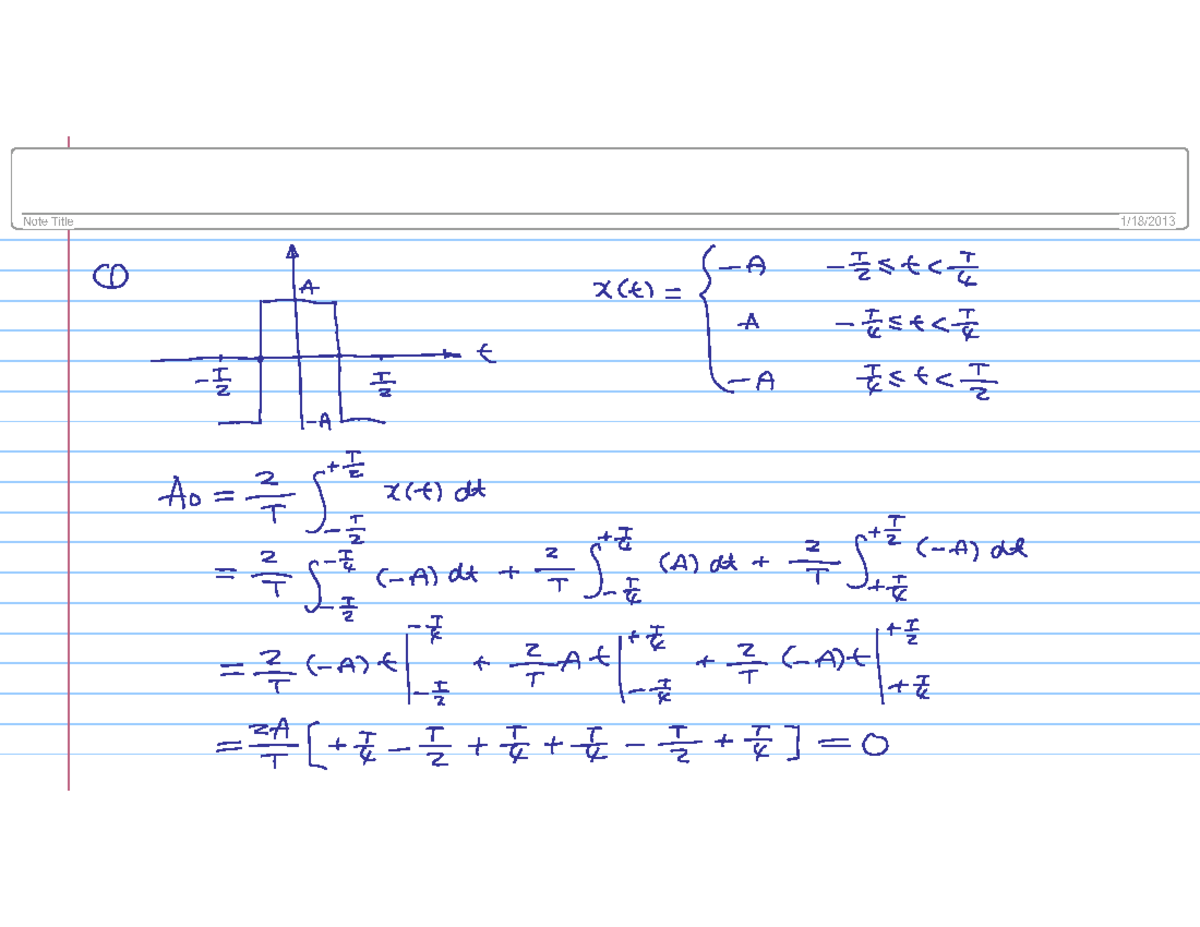 Note Title
1/18/2013
①
A
t
-T/2
T/2
-A
x(t) = { -A   -T/2 ≤ t < -T/4
A   -T/4 ≤ t < T/4
-A   T/4 ≤ t < T/2
A₀ = 2/T ∫_{-T/2}^{+T/2} x(t) dt
= 2/T ∫_{-T/2}^{-T/4} (-A) dt + 2/T ∫_{-T/4}^{+T/4} (A) dt + 2/T ∫_{+T/4}^{+T/2} (-A) dt
= 2/T (-A) t |_{-T/2}^{-T/4} + 2/T A t |_{-T/4}^{+T/4} + 2/T (-A) t |_{+T/4}^{+T/2}
= 2A/T [ +T/4 - T/2 + T/4 + T/4 - T/2 + T/4 ] = 0